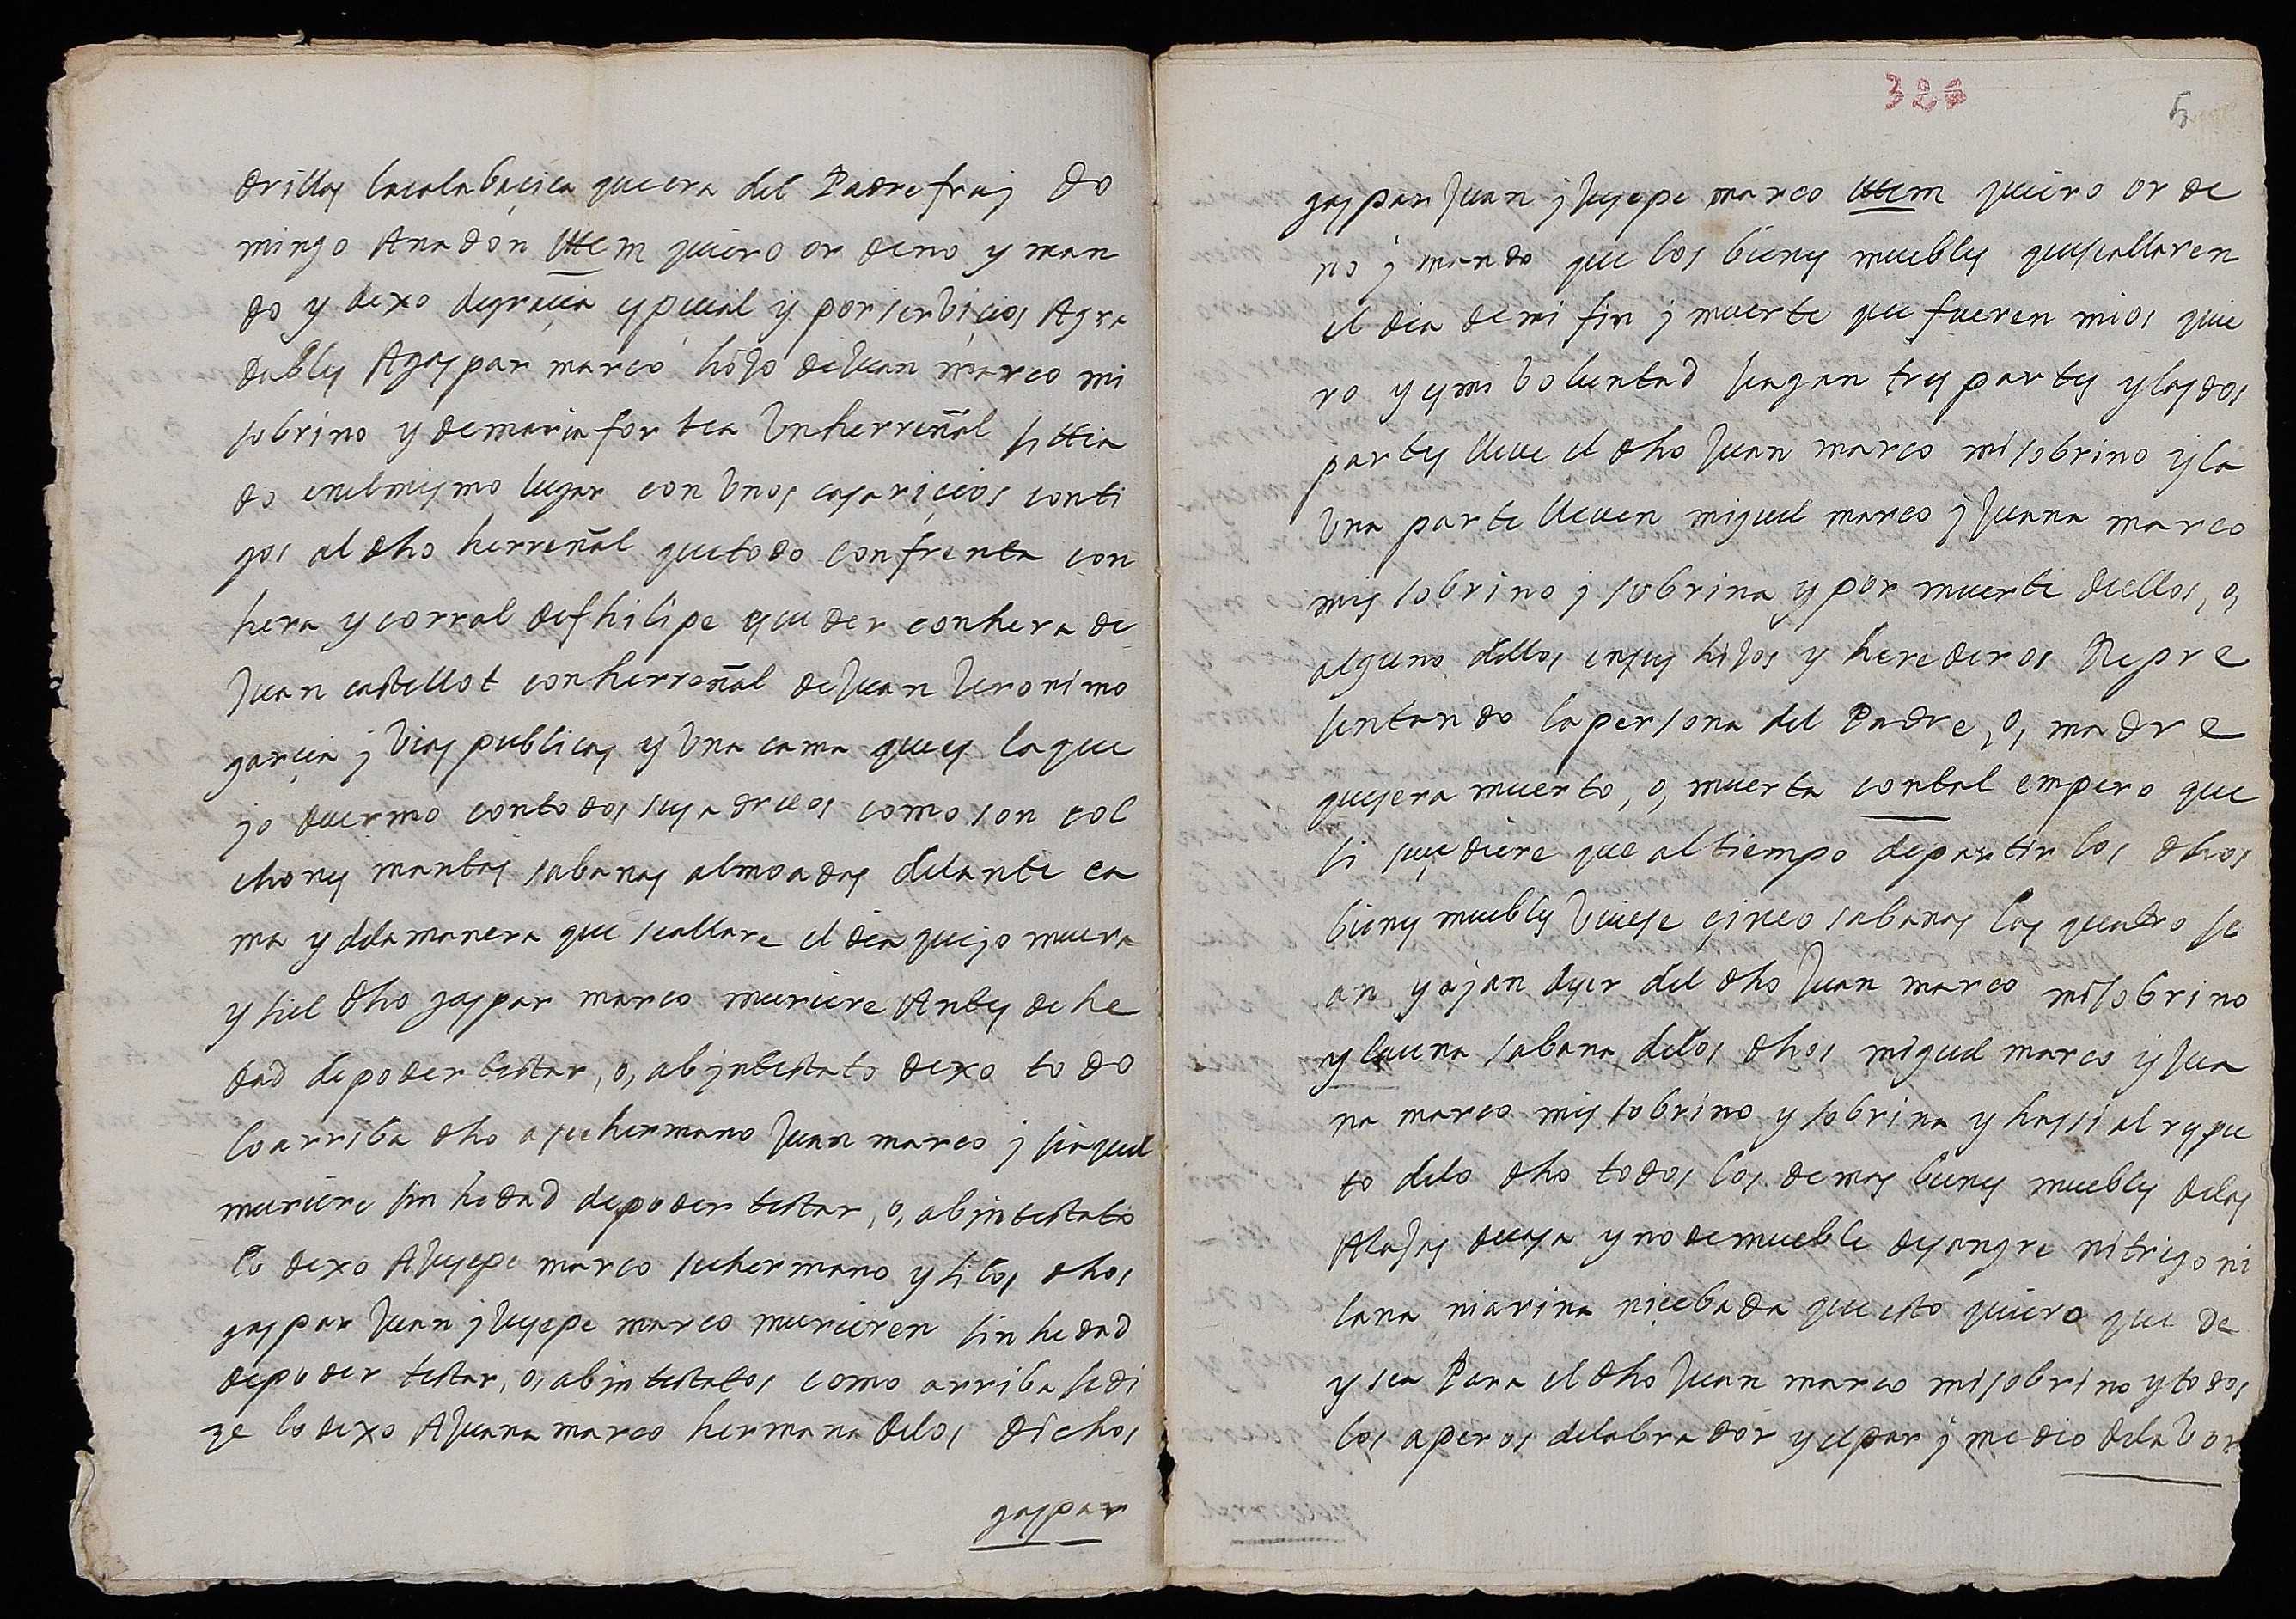 drillas lacalabaçica que era del Padre fraj do
mingo Anadon Ittem quiero or deno y man
do y dexo degraçia espeçial y por serbiçios Agra
dables Agaspar marco hijo deJuan marco mi
sobrino y demaria for tea Unherreñal sittia
do enelmismo lugar con Unos casariçios conti
gos al dho herreñal quetodo confrenta con
hera y corral dephilipe escuder conhera de
Juan castellot conherreñal deJuan Jeronimo
garçia j bias publicas y Una cama ques laque
jo duermo contodos sus adreços como son col
chones mantas sabanas almoadas delante ca
ma y delamanera que seallare el dia quejo muera
y siel dho gaspar marco muriere Antes de he
dad depoder testar, o, abjntestato dexo to do
loarriba dho a su hermano Juan marco j siaquel
muriere sin hedad depoder testar, o, abjntestato
lo dexo AJusepe marco suhermano y silos dhos
gaspar Juan jJusepe marco murieren sin hedad
depoder testar, o, abjntestatos como arriba sedi
ze lo dexo AJuana marco hermana delos dichos
gaspar
326
5
gaspar Juan jJusepe marco Ittem quiero or de
no j mando que los bienes muebles queseallaren
el dia de mi fin j muerte que fueren mios quie
ro y esmi Voluntad sagan tres partes ylasdos
partes lleve el dho Juan marco misobrino yla
Una parte lleven miguel marco jJuana marco
mis sobrino j sobrina y por muerte dellos, o,
alguno dellos ensus hijos y herederos Repre
sentando lapersona del Padre, o, madre
quesera muerto, o, muerta contal empero que
si suçediere que altiempo departir los dhos
bienes muebles Uviese çinco sabanas las quatro se
an yajan deser del dho Juan marco misobrino
y launa sabana delos dhos miguel marco yJua
na marco mis sobrino y sobrina y hassi al respe
to delo dho todos los demas bienes muebles delas
Alajas decasa y no demueble desangre nitrigo ni
lana niarina niçebada que esto quiero que de
y sea Para el dho Juan marco misobrino ytodos
los aperos delabrador yelpar j medio delabor